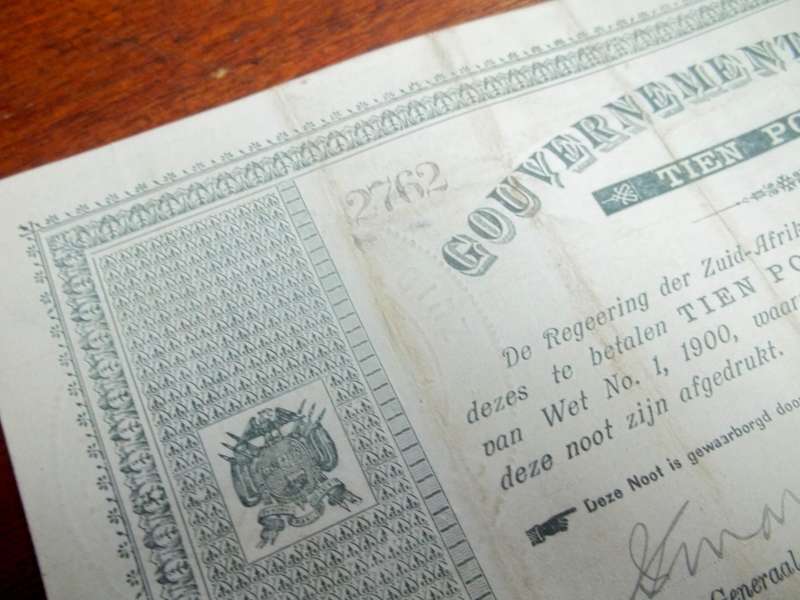 2762
GOUVERNEMENT
TIEN PO
De Regeering der Zuid-Afrik
dezes te betalen TIEN PO
van Wet No. 1, 1900, waar
deze noot zijn afgedrukt.
Deze Noot is gewaarborgd doo
Generaal